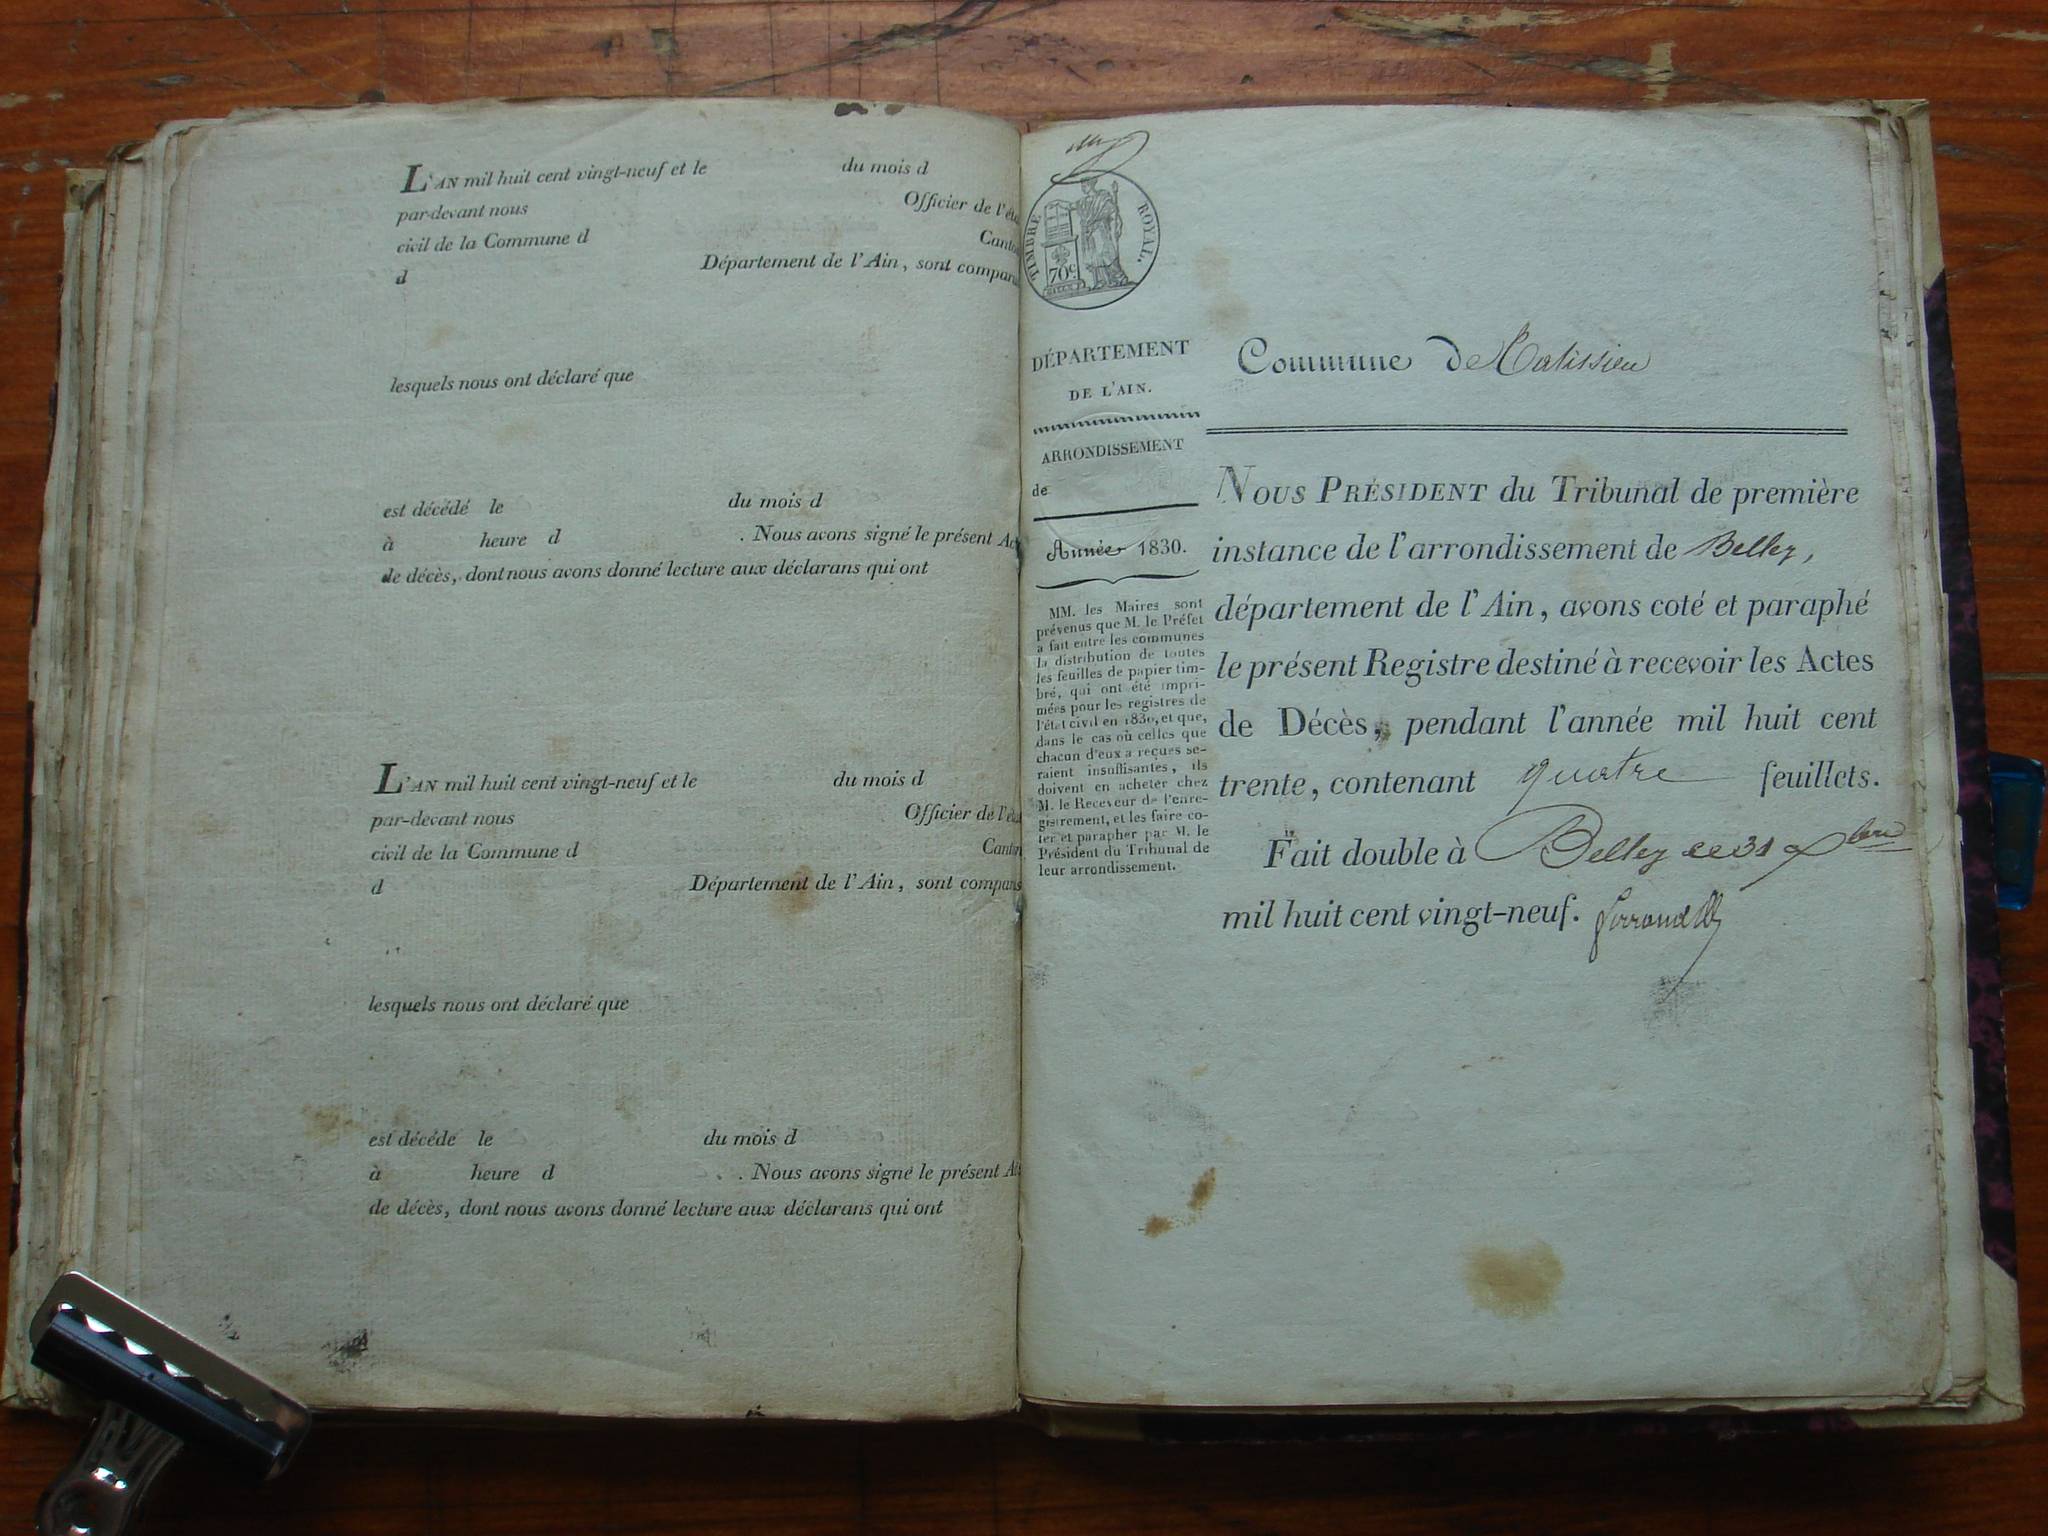 L'AN mil huit cent vingt-neuf et le du mois d
par-devant nous Officier de l'éta
civil de la Commune d Canto
d Département de l'Ain, sont comparu
lesquels nous ont déclaré que
est décédé le du mois d
à heure d . Nous avons signé le présent Ac
de décès, dont nous avons donné lecture aux déclarans qui ont
L'AN mil huit cent vingt-neuf et le du mois d
par-devant nous Officier de l'éta
civil de la Commune d Canton
d Département de l'Ain, sont comparus
lesquels nous ont déclaré que
est décédé le du mois d
à heure d . Nous avons signé le présent Ac
de décès, dont nous avons donné lecture aux déclarans qui ont
TIMBRE ROYAL.
70c.
DÉPARTEMENT
DE L'AIN.
ARRONDISSEMENT
de
Année 1830.
MM. les Maires sont
prévenus que M. le Préfet
a fait entre les communes
la distribution de toutes
les feuilles de papier tim-
bré, qui ont été impri-
mées pour les registres de
l'état civil en 1830, et que,
dans le cas où celles que
chacun d'eux a reçues se-
raient insuffisantes, ils
doivent en acheter chez
M. le Receveur de l'enre-
gistrement, et les faire co-
ter et parapher par M. le
Président du Tribunal de
leur arrondissement.
Commune de Catissieu
NOUS PRÉSIDENT du Tribunal de première
instance de l'arrondissement de Belley,
département de l'Ain, avons coté et paraphé
le présent Registre destiné à recevoir les Actes
de Décès, pendant l'année mil huit cent
trente, contenant quatre feuillets.
Fait double à Belley ce 31 Xbre
mil huit cent vingt-neuf.